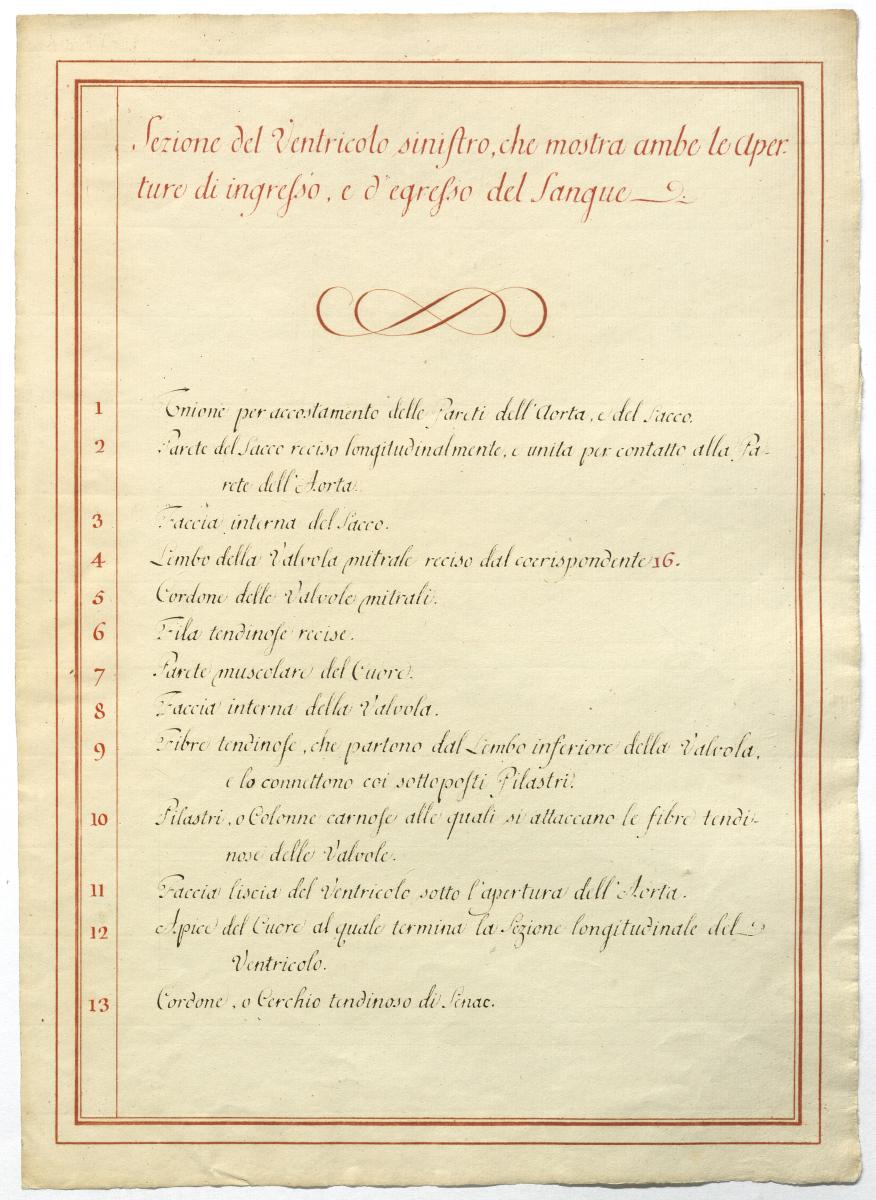 Sezione del Ventricolo siniſtro, che mostra ambe le Aper-
ture di ingreſso, e d'egreſso del Sangue
1 Unione per accostamento delle Pareti dell'Aorta, e del Sacco.
2 Parete del Sacco reciso longitudinalmente, e unita per contatto alla Pa-
rete dell'Aorta.
3 Faccia interna del Sacco.
4 Limbo della Valvola mitrale reciso dal corrispondente 16.
5 Cordone delle Valvole mitrali.
6 Fila tendinoſe recise.
7 Parete muscolare del Cuore.
8 Faccia interna della Valvola.
9 Fibre tendinoſe, che partono dal Limbo inferiore della Valvola,
e lo connettono coi sottopoſti Pilastri.
10 Pilastri, o Colonne carnoſe alle quali si attaccano le fibre tendi-
nose delle Valvole.
11 Faccia liscia del Ventricolo sotto l'apertura dell'Aorta.
12 Apice del Cuore al quale termina la Sezione longitudinale del
Ventricolo.
13 Cordone, o Cerchio tendinoso di Senac.